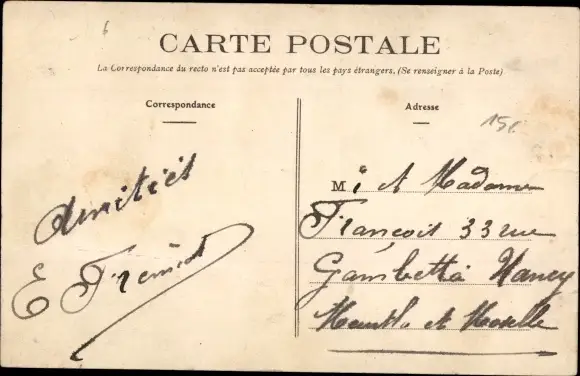 6
CARTE POSTALE
La Correspondance du recto n'est pas acceptée par tous les pays étrangers. (Se renseigner à la Poste)
Correspondance
Adresse
15f
Amitiés
E Frémiot
Mr et Madame
François 33 rue
Gambetta Nancy
Meurthe et Moselle